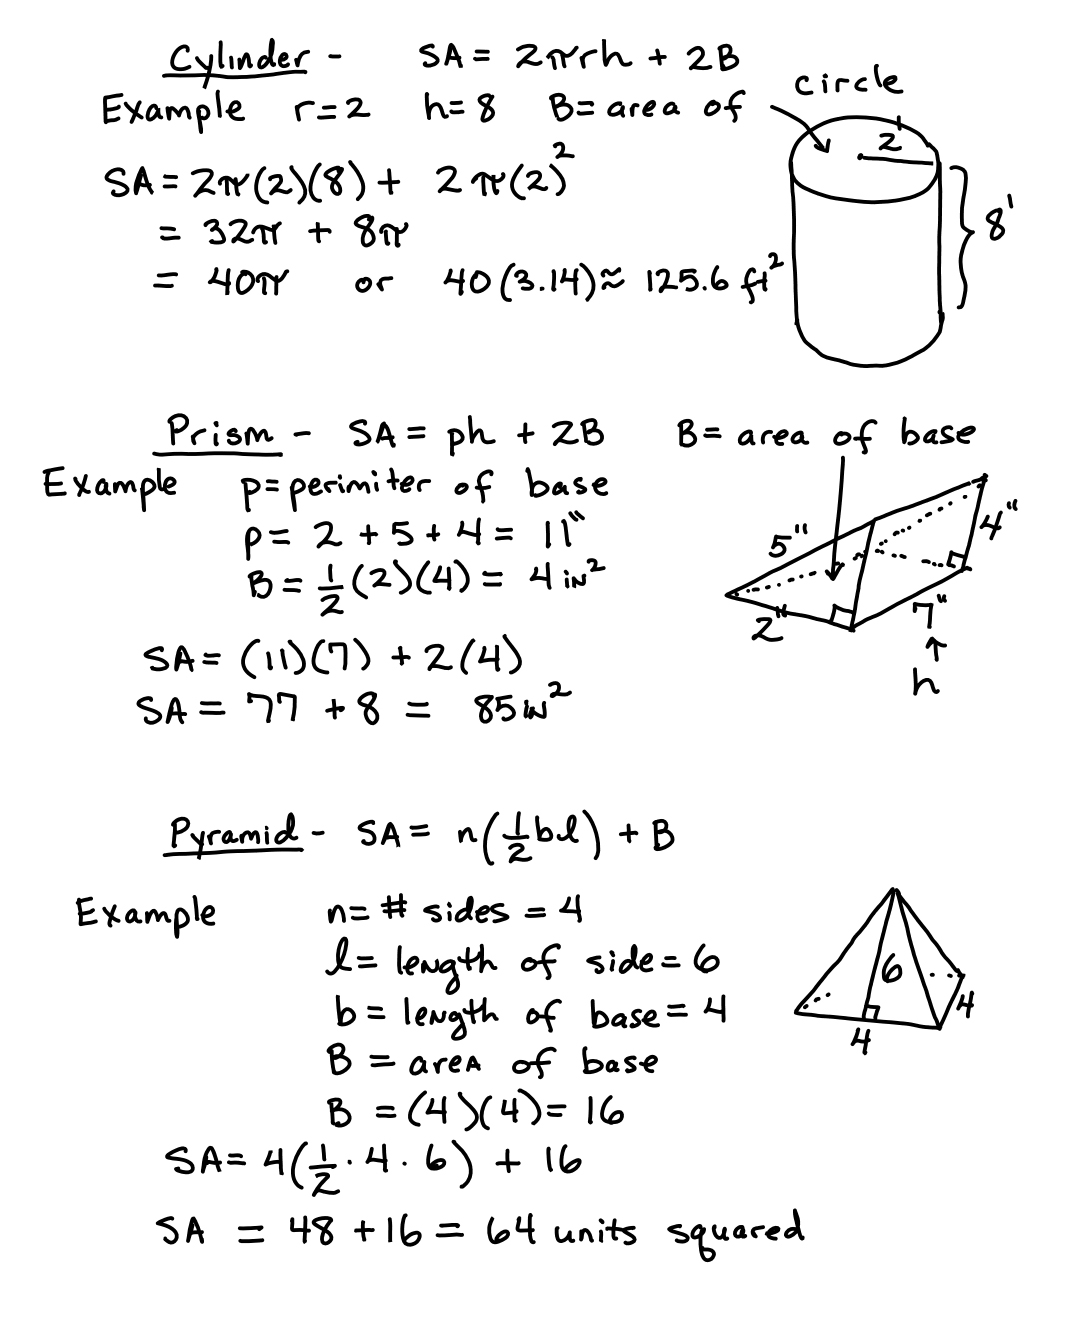 Cylinder - SA = 2πrh + 2B
Example r=2 h=8 B= area of circle
2'
8'
SA = 2π(2)(8) + 2π(2)²
= 32π + 8π
= 40π or 40(3.14)≈ 125.6 ft²
Prism - SA = ph + 2B B= area of base
Example p=perimiter of base
p= 2 + 5 + 4 = 11"
B = 1/2 (2)(4) = 4 in²
5"
4"
2"
7"
h
SA= (11)(7) + 2(4)
SA = 77 + 8 = 85 in²
Pyramid - SA = n(1/2 bl) + B
Example n= # sides = 4
l= length of side = 6
b = length of base = 4
B = area of base
B = (4)(4)= 16
6
4
4
SA= 4(1/2 · 4 · 6) + 16
SA = 48 + 16 = 64 units squared